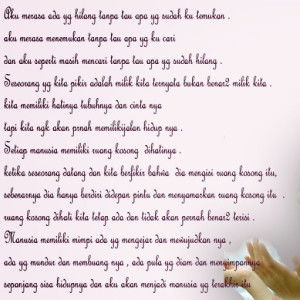 Aku merasa ada yg hilang tanpa tau apa yg sudah ku temukan .
aku merasa menemukan tanpa tau apa yg ku cari
dan aku seperti masih mencari tanpa tau apa yg sudah hilang .
Seseorang yg kita pikir adalah milik kita ternyata bukan benar2 milik kita .
kita memiliki hatinya tubuhnya dan cinta nya
tapi kita ngk akan prnah memilikijalan hidup nya .
Setiap manusia memiliki ruang kosong dihatinya .
ketika seseorang datang dan kita berfikir bahwa dia mengisi ruang kosong itu,
sebenarnya dia hanya berdiri didepan pintu dan menyamarkan ruang kosong itu .
ruang kosong dihati kita tetap ada dan tidak akan pernah benar2 terisi .
Manusia memiliki mimpi ada yg mengejar dan mewujudkan nya ,
ada yg mundur dan membuang nya , ada pula yg diam dan menyimpannya
sepanjang sisa hidupnya dan aku akan menjadi manusia yg terakhir itu